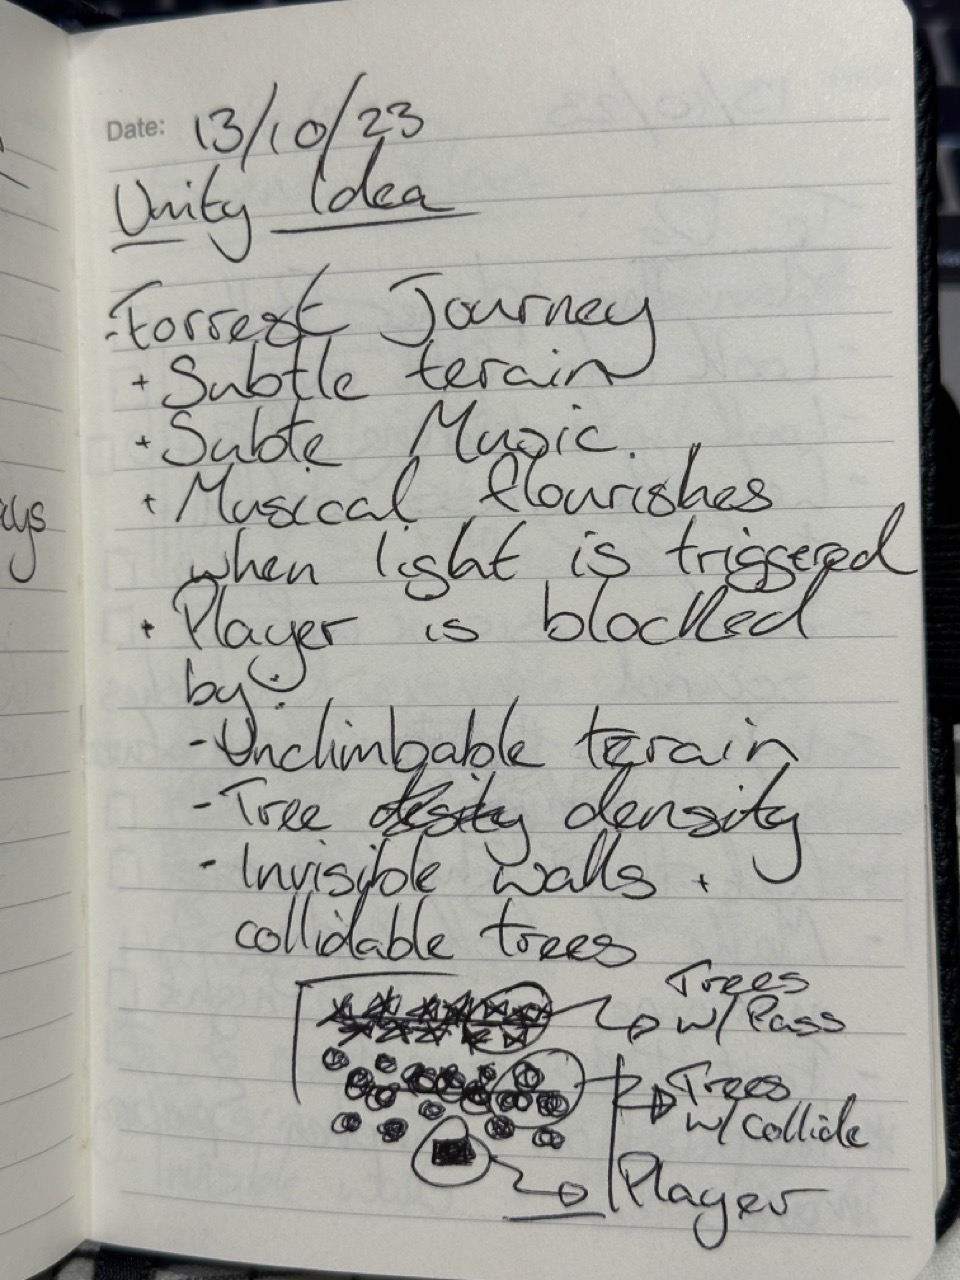 Date: 13/10/23
Unity Idea
- Forrest Journey
+ Subtle terain
+ Subte Music.
+ Musical flourishes
when light is triggered
+ Player is blocked
by:
- Unclimbable terain
- Tree density
- Invisible walls +
collidable trees
Trees
w/ Pass
Trees
w/ collide
Player
ays